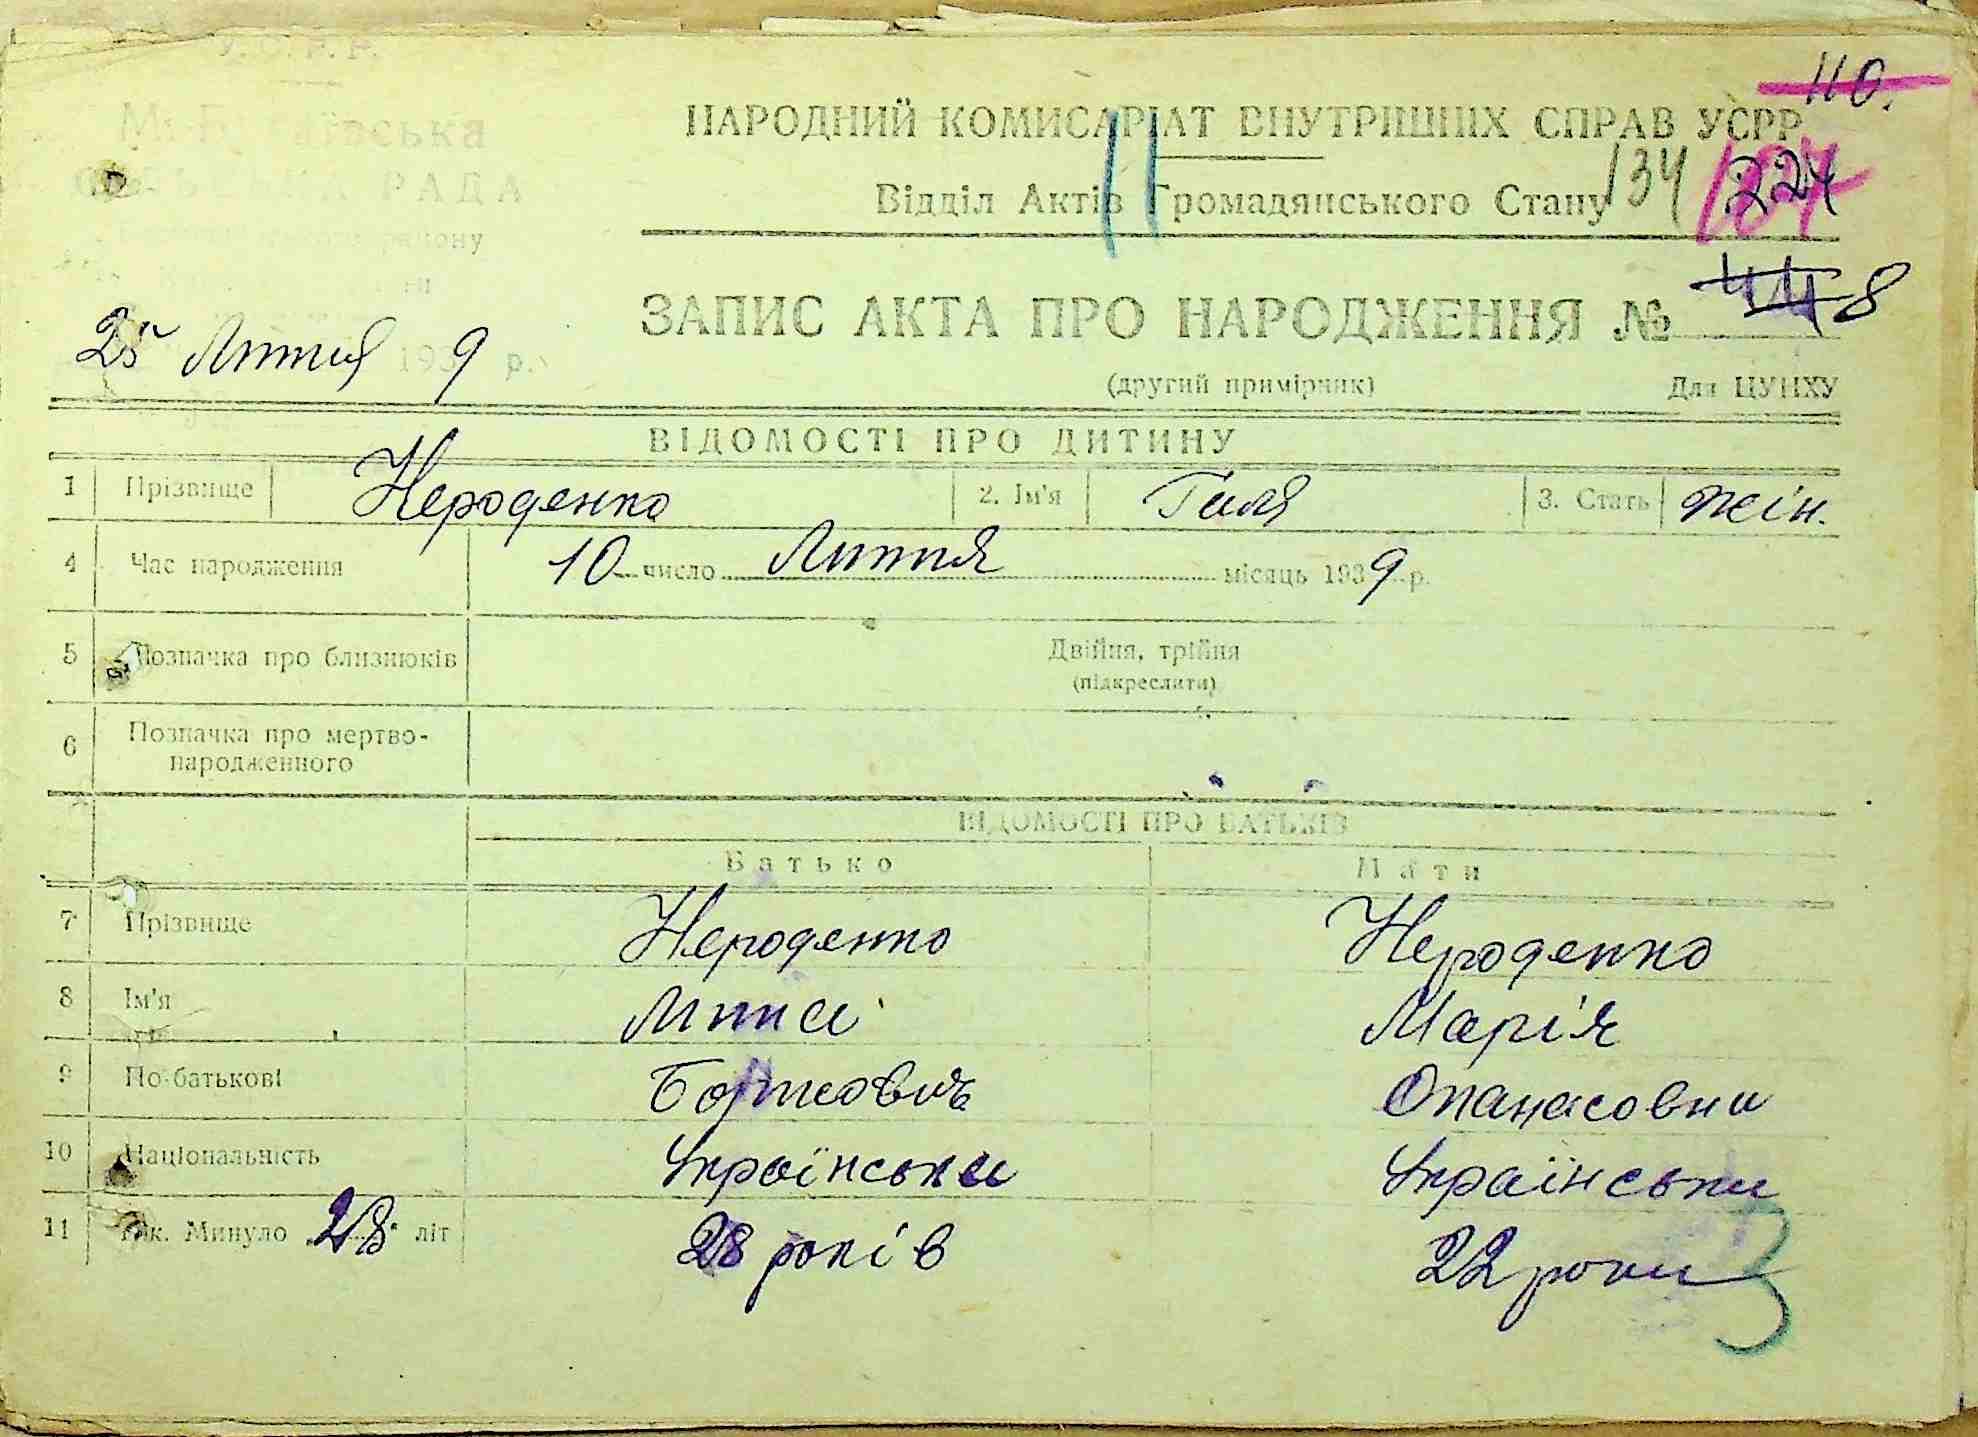 У.С.Р.Р.
РАДА
району
25 Липня 1939 р.
110.
НАРОДНИЙ КОМИСАРІАТ ВНУТРІШНІХ СПРАВ УСРР
11
Відділ Актів Громадянського Стану
134
224
ЗАПИС АКТА ПРО НАРОДЖЕННЯ № 44 8
(другий примірник)
Для ЦУНХУ
ВІДОМОСТІ ПРО ДИТИНУ
1 Прізвище Нероденко 2. Ім'я Галя 3. Стать жін.
4 Час народження 10 число Липня місяць 1939 р.
5 Позначка про близнюків Двійня, трійня
(підкреслити)
6 Позначка про мертво-
народженного
ВІДОМОСТІ ПРО БАТЬКІВ
Батько Мати
7 Прізвище Нероденко Нероденко
8 Ім'я Марія
9 По-батькові Опанасовна
10 Національність Українська Українська
11 Вік. Минуло 28 літ 28 років 22 роки
3